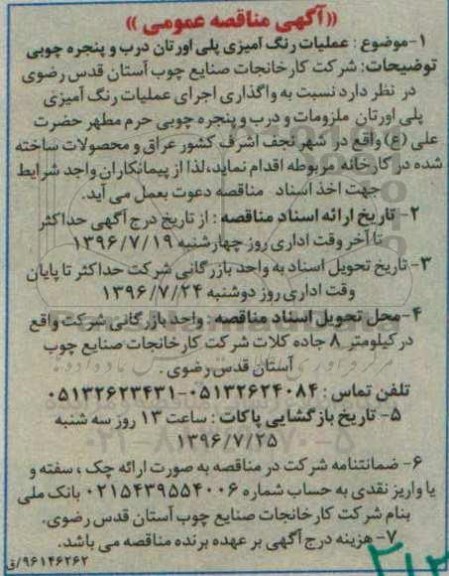 «آگهی مناقصه عمومی»
۱-موضوع : عملیات رنگ آمیزی پلی اورتان درب و پنجره چوبی
توضیحات: شرکت کارخانجات صنایع چوب آستان قدس رضوی
در نظر دارد نسبت به واگذاری اجرای عملیات رنگ آمیزی
پلی اورتان ملزومات و درب و پنجره چوبی حرم مطهر حضرت
علی (ع) واقع در شهر نجف اشرف کشور عراق و محصولات ساخته
شده در کارخانه مربوطه اقدام نماید، لذا از پیمانکاران واجد شرایط
جهت اخذ اسناد مناقصه دعوت بعمل می آید.
۲- تاریخ ارائه اسناد مناقصه : از تاریخ درج آگهی حداکثر
تا آخر وقت اداری روز چهارشنبه ۱۳۹۶/۷/۱۹
۳- تاریخ تحویل اسناد به واحد بازرگانی شرکت حداکثر تا پایان
وقت اداری روز دوشنبه ۱۳۹۶/۷/۲۴
۴-محل تحویل اسناد مناقصه : واحد بازرگانی شرکت واقع
در کیلومتر ۸ جاده کلات شرکت کارخانجات صنایع چوب
آستان قدس رضوی.
تلفن تماس : ۰۵۱۳۲۶۲۴۰۸۴-۰۵۱۳۲۶۲۳۴۳۱
۵- تاریخ بازگشایی پاکات : ساعت ۱۳ روز سه شنبه
۱۳۹۶/۷/۲۵
۶- ضمانتنامه شرکت در مناقصه به صورت ارائه چک ، سفته و
یا واریز نقدی به حساب شماره ۰۲۱۵۴۳۹۵۵۴۰۰۶ بانک ملی
بنام شرکت کارخانجات صنایع چوب آستان قدس رضوی.
۷- هزینه درج آگهی بر عهده برنده مناقصه می باشد.
۹۶۱۴۶۲۶۲/ق